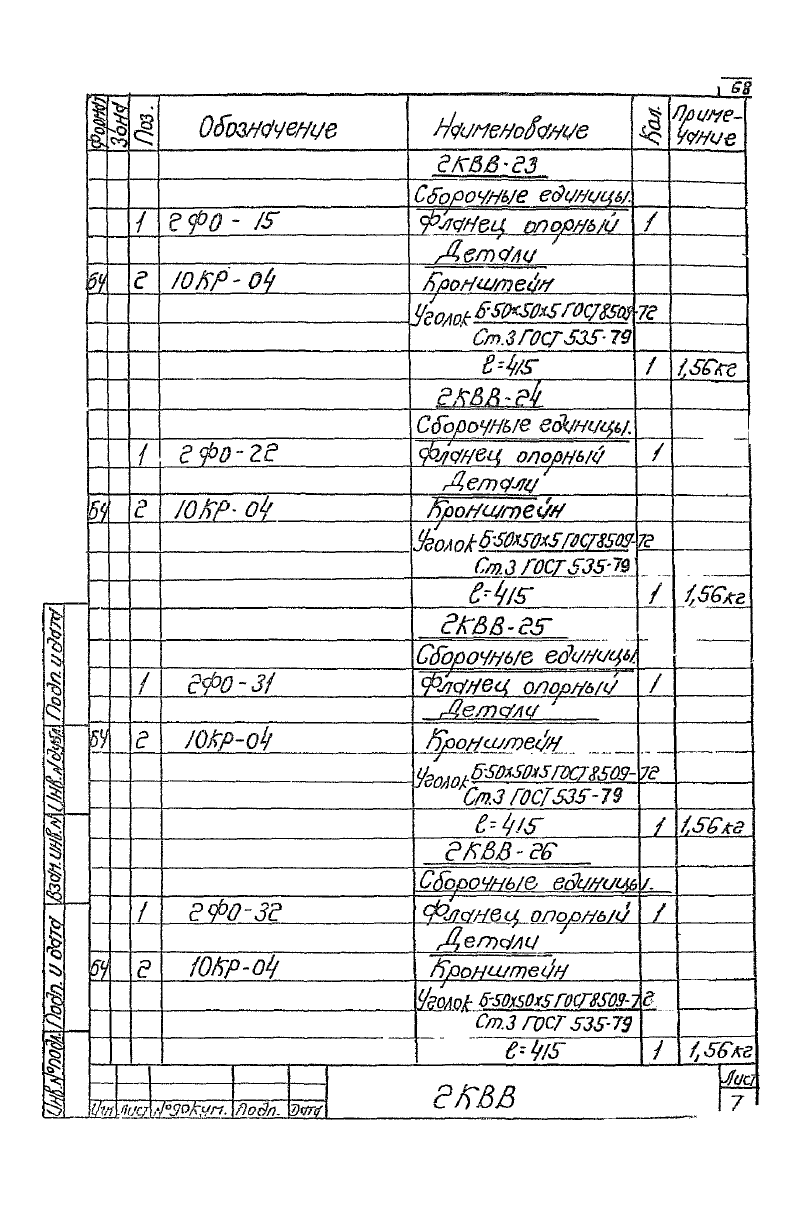 68
Формат Зона Поз. Обозначение Наименование Кол. Примечание
2КВВ-23
Сборочные единицы.
1 2ФО-15 Фланец опорный 1
Детали
БЧ 2 10КР-04 Кронштейн
Уголок Б-50х50х5 ГОСТ 8509-72
Ст.3 ГОСТ 535-79
ℓ=415 1 1,56кг
2КВВ-24
Сборочные единицы.
1 2ФО-22 Фланец опорный 1
Детали
БЧ 2 10КР-04 Кронштейн
Уголок Б-50х50х5 ГОСТ 8509-72
Ст.3 ГОСТ 535-79
ℓ=415 1 1,56кг
2КВВ-25
Сборочные единицы.
1 2ФО-31 Фланец опорный 1
Детали
БЧ 2 10КР-04 Кронштейн
Уголок Б-50х50х5 ГОСТ 8509-72
Ст.3 ГОСТ 535-79
ℓ=415 1 1,56кг
2КВВ-26
Сборочные единицы.
1 2ФО-32 Фланец опорный 1
Детали
БЧ 2 10КР-04 Кронштейн
Уголок Б-50х50х5 ГОСТ 8509-72
Ст.3 ГОСТ 535-79
ℓ=415 1 1,56кг
Изм Лист № докум. Подп. Дата
2КВВ
Лист
7
Инв.№подл. Подп. и дата Взам.инв.№ Инв.№дубл. Подп. и дата